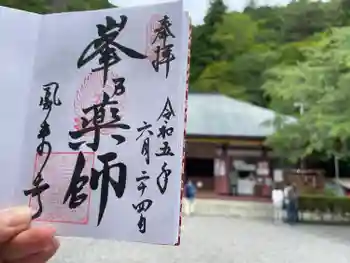 奉拝
令和五年
六月二十四日
峯乃薬師
鳳来寺